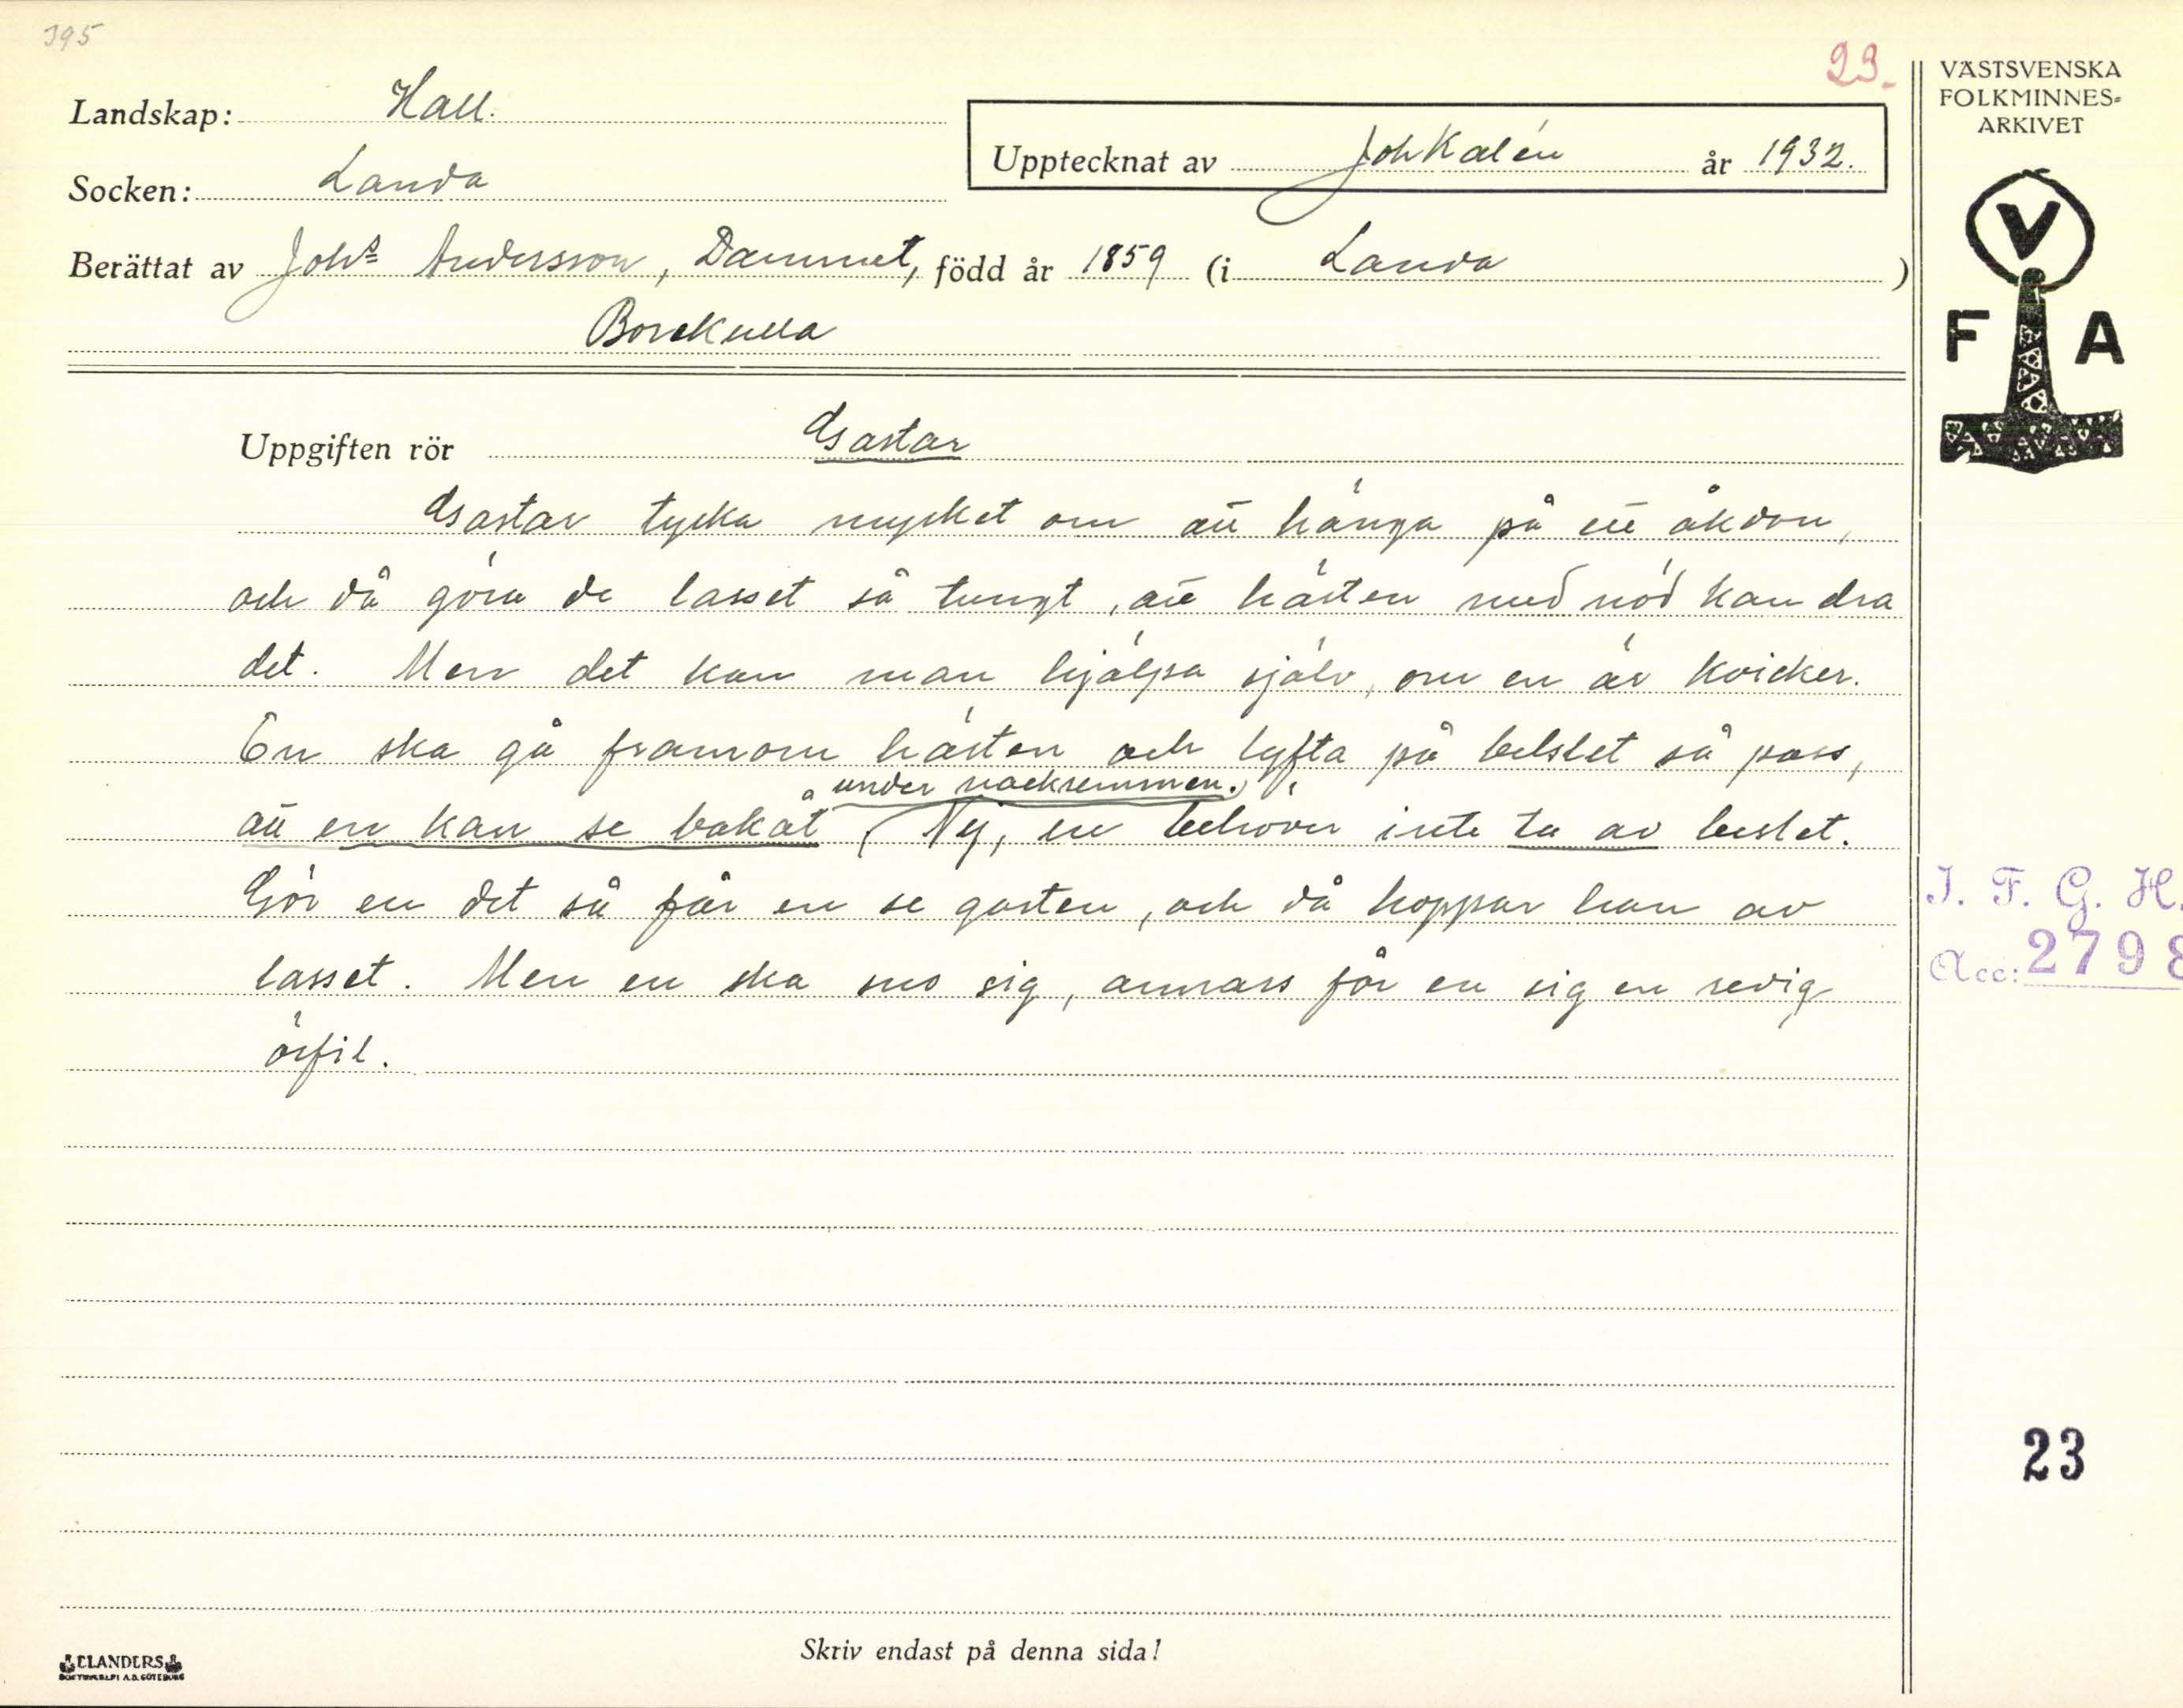 395
23.
Landskap: Hall.
Socken: Landa
Upptecknat av Joh Kalén år 1932.
Berättat av Johs Andersson, Dammet, född år 1859 (i Landa)
Borekulla
Uppgiften rör Gastar
Gastar tycka mycket om att hänga på ett åkdon,
och då göra de lasset så tungt, att hästen med nöd kan dra
det. Men det kan man hjälpa själv, om en är kvicker.
En ska gå framom hästen och lyfta på betslet så pass,
under nackremmen.
att en kan se bakåt (Nej, en behöver inte ta av betslet.
Gör en det så får en se gasten, och då hoppar han av
lasset. Men en ska sno sig, annars får en sig en redig
örfil.
Skriv endast på denna sida!
ELANDERS
BOKTRYCKERI A.B. GÖTEBORG
VÄSTSVENSKA
FOLKMINNES-
ARKIVET
V
F A
I. F. G. H.
Acc: 2798
23